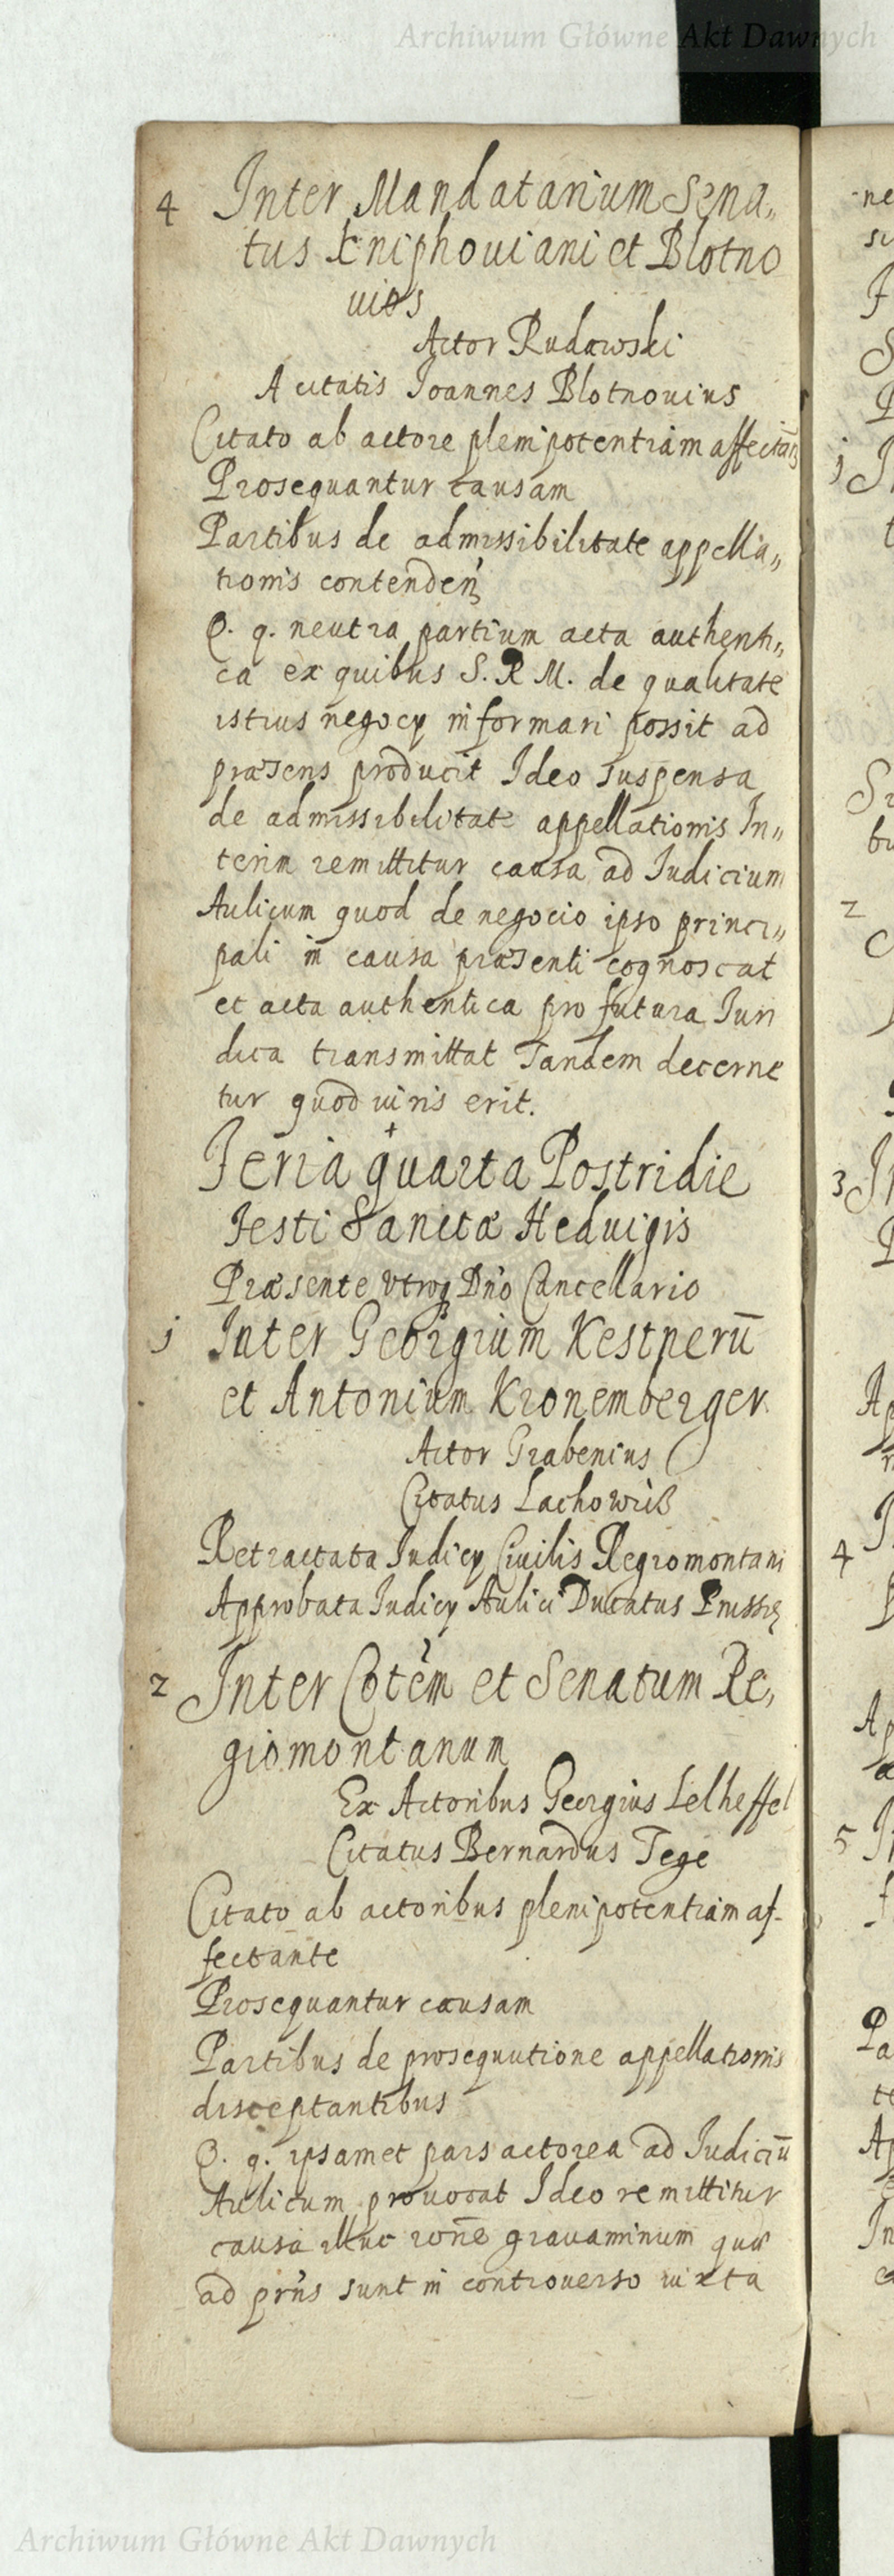 Archiwum Główne Akt Dawnych
4 Inter Mandatarium Sena„
tus Kniphouiani et Blotno
uios
Actor Rudawski
A citatis Joannes Blotnouius
Citato ab actore plenipotentiam affectan̄
Prosequantur causam
Partibus de admissibilitate appella„
tionis contenden̄
Q. q. neutra partium acta authenti„
ca ex quibus S. R M. de qualitate
istius negocy informari possit ad
præsens producit Ideo suspensa
de admissibilitate appellationis In„
terim remittitur causa ad Iudicium
Aulicum quod de negocio ipso princi„
pali in causa præsenti cognoscat
et acta authentica pro futura Iuri
dica transmittat Tandem decerne
tur quod iuris erit.
Feria quarta Postridie
Festi Sanctæ Heduigis
Præsente vtroq Dño Cancellario
1 Inter Georgium Kestperū
et Antonium Kronemberger
Actor Grabenius
Citatus Lachowiß
Retractata Iudicy Ciuilis Regiomontani
Approbata Iudicy Aulici Ducatus Prussię
2 Inter Cotem et Senatum Re„
giomontanum
Ex Actoribus Georgius Lelheffel
Citatus Bernardus Tege
Citato ab actoribus plenipotentiam af-
fectante
Prosequantur causam
Partibus de prosequutione appellationis
disceptantibus
Q. q. ipsamet pars actorea ad Iudiciū
Aulicum prouocat Ideo remittitur
causa illuc rōne grauaminum quæ
ad prn̄s sunt in controuerso iuxta
Archiwum Główne Akt Dawnych